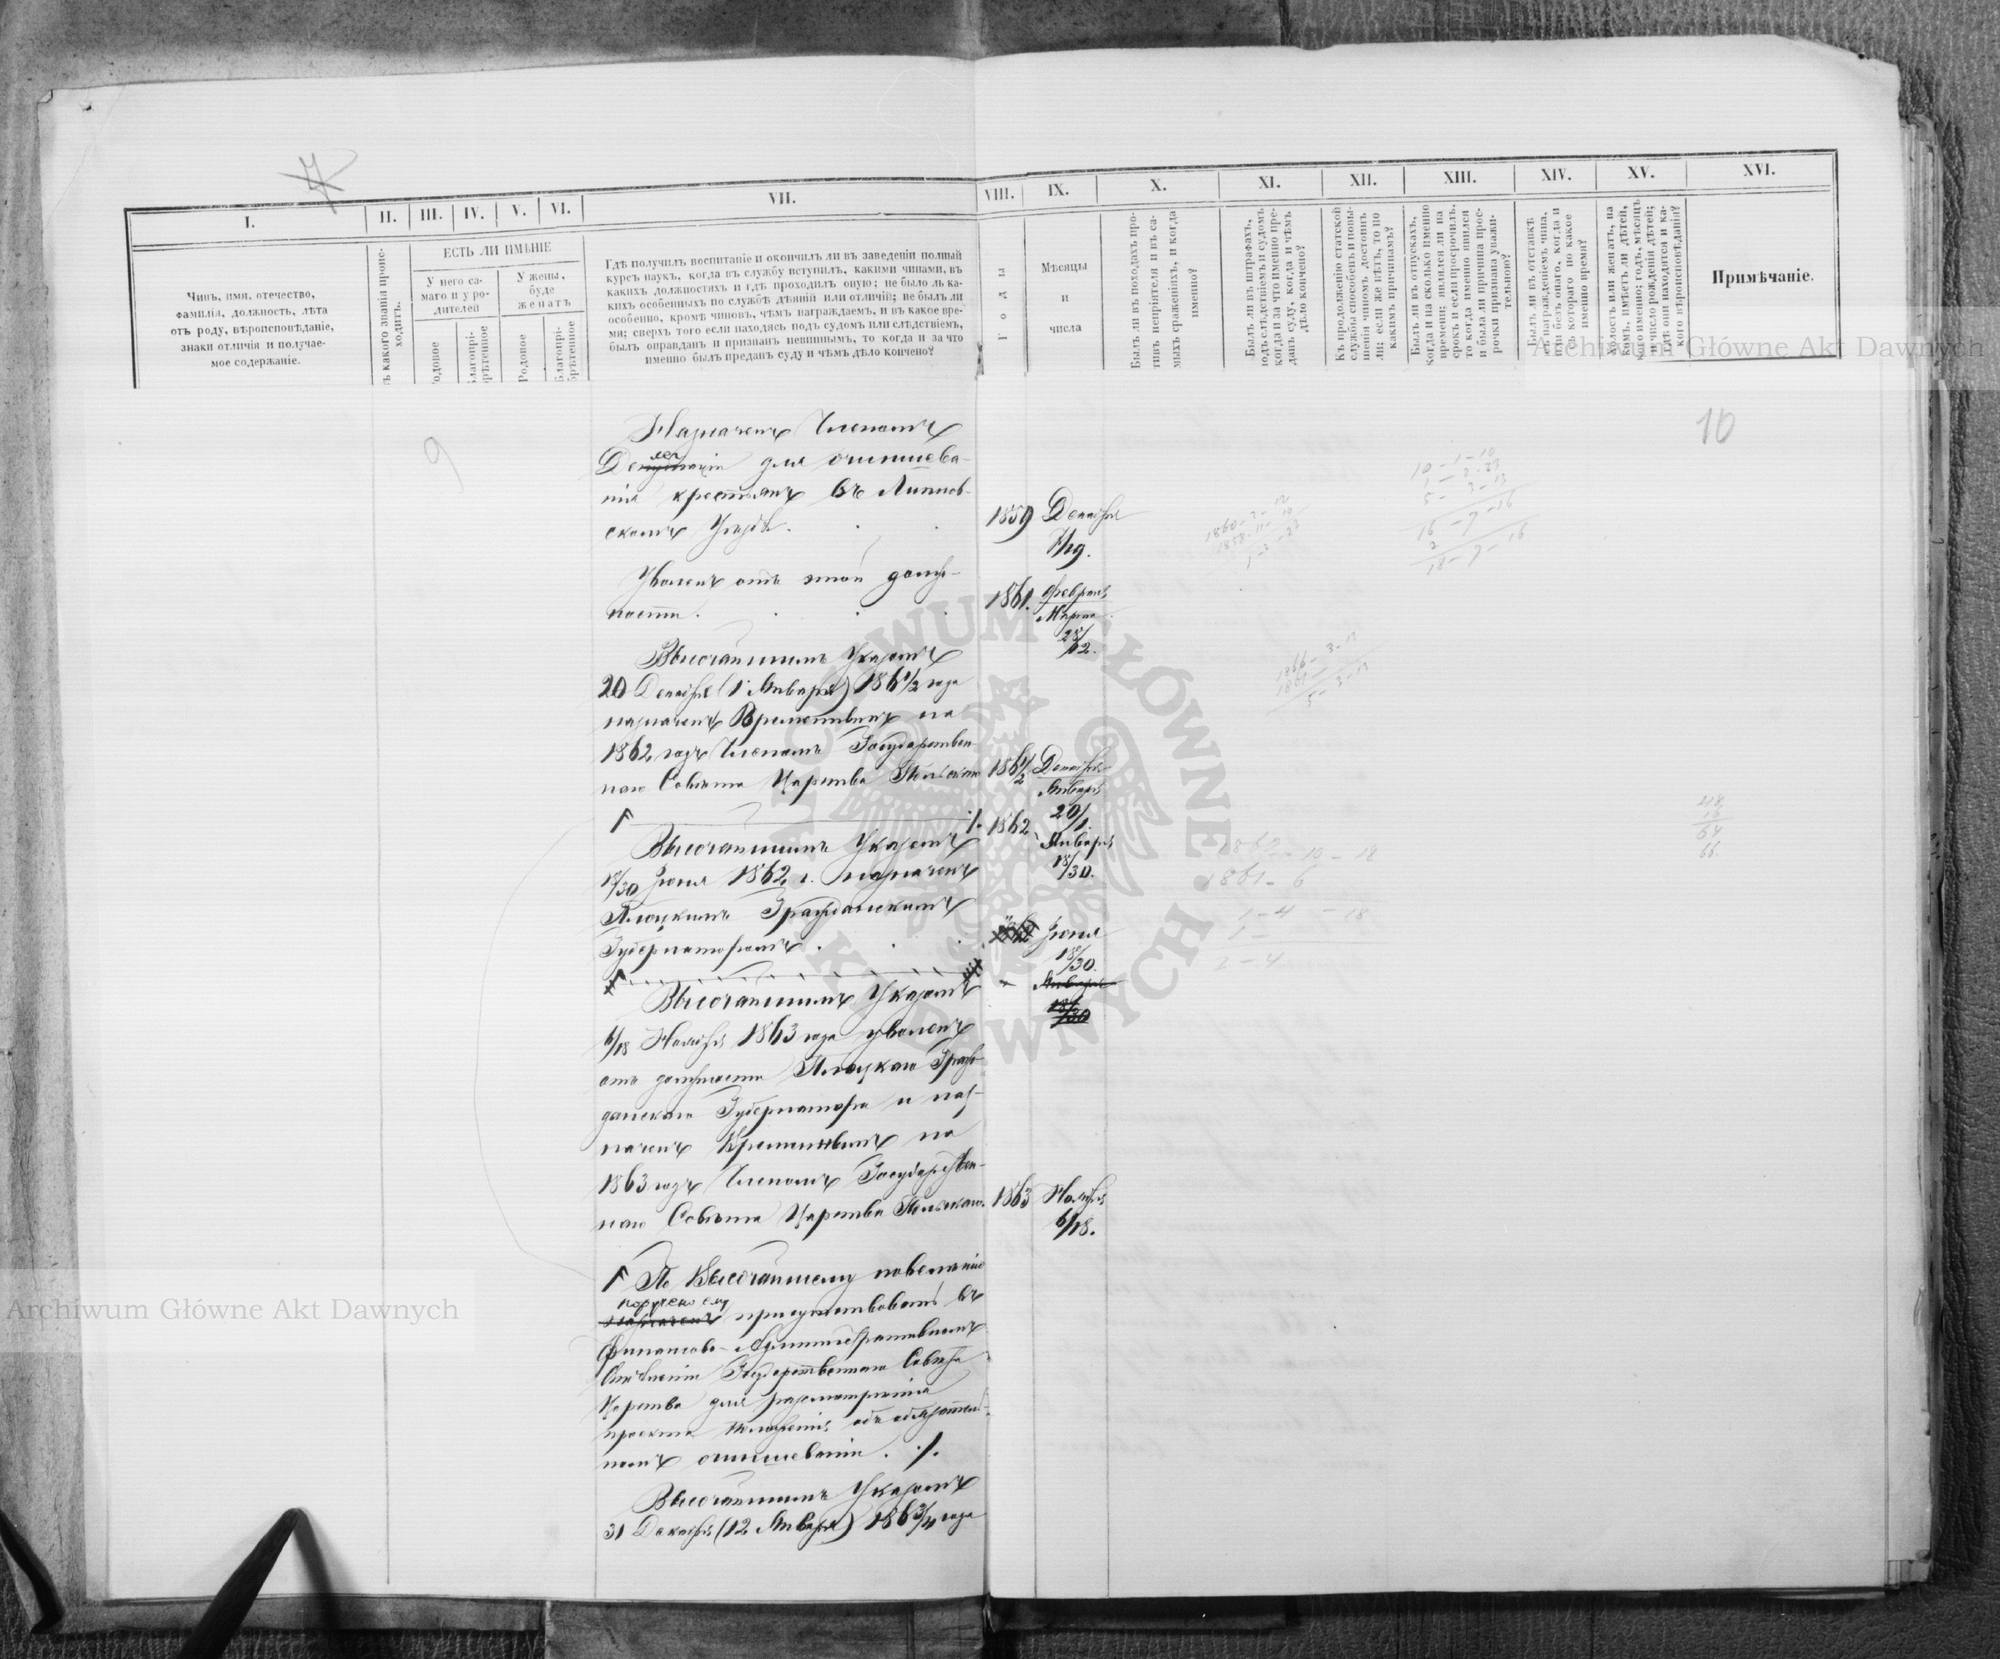 I.
II.
III.
IV.
V.
VI.
VII.
VIII.
IX.
X.
XI.
XII.
XIII.
XIV.
XV.
XVI.
Чинъ, имя, отечество,
фамилія, должность, лѣта
отъ роду, вѣроисповѣданіе,
знаки отличія и получае-
мое содержаніе.
Изъ какого званія проис-
ходитъ.
ЕСТЬ ЛИ ИМѢНІЕ
У него са-
маго и у ро-
дителей
У жены,
буде
женатъ
Родовое
Благопрі-
обрѣтенное
Родовое
Благопрі-
обрѣтенное
Гдѣ получилъ воспитаніе и окончилъ ли въ заведеніи полный
курсъ наукъ, когда въ службу вступилъ, какими чинами, въ
какихъ должностяхъ и гдѣ проходилъ оную; не было ль ка-
кихъ особенныхъ по службѣ дѣяній или отличій; не былъ ли
особенно, кромѣ чиновъ, чѣмъ награждаемъ, и въ какое вре-
мя; сверхъ того если находясь подъ судомъ или слѣдствіемъ,
былъ оправданъ и признанъ невиннымъ, то когда и за что
именно былъ преданъ суду и чѣмъ дѣло кончено?
Годы
Мѣсяцы
и
числа
Былъ ли въ походахъ про-
тивъ непріятеля и въ са-
мыхъ сраженіяхъ, и когда
именно?
Былъ ли въ штрафахъ,
подъ слѣдствіемъ и судомъ
когда и за что именно пре-
данъ суду, когда и чѣмъ
дѣло кончено?
Къ продолженію статской
службы способенъ и повы-
шенія чиномъ достоинъ
ли; если же нѣтъ, то по
какимъ причинамъ?
Былъ ли въ отпускахъ,
когда и на сколько именно
времени; явился ли на
срокъ и если просрочилъ,
то когда именно явился
и была ли причина прос-
рочки признана уважи-
тельною?
Былъ ли въ отставкѣ
съ награжденіемъ чина,
или безъ онаго, когда и
съ котораго по какое
именно время?
Холостъ или женатъ, на
комъ, имѣетъ ли дѣтей,
кого именно; годъ, мѣсяцъ
и число рожденія дѣтей;
гдѣ они находятся и ка-
кого вѣроисповѣданія?
Примѣчаніе.
9
10
Назначенъ Членомъ
для очиншева-
нія крестьянъ въ Липнов-
скомъ Уѣздѣ.
1859 Декабря
7/19.
Уволенъ отъ этой долж-
ности.
1861. Февраль
Марта
28/12.
Высочайшимъ Указомъ
20 Декабря (1 Января) 1861/2 года
назначенъ Временнымъ на
1862 годъ Членомъ Государствен-
наго Совѣта Царства Польскаго
1861/2 Декабрь
Январь
20/1.
1862 Январь
18/30.
Высочайшимъ Указомъ
18/30 Іюня 1862 г. назначенъ
Плоцкимъ Гражданскимъ
Губернаторомъ.
Іюня
18/30.
Январь
18/30
Высочайшимъ Указомъ
6/18 Ноября 1863 года уволенъ
отъ должности Плоцкаго Граж-
данскаго Губернатора и наз-
наченъ Временнымъ на
1863 годъ Членомъ Государствен-
наго Совѣта Царства Польскаго.
1863 Ноябрь
6/18.
По Высочайшему повелѣнію
поручено ему
назначенъ присутствовать въ
Финансово-Административномъ
Отдѣленіи Государственнаго Совѣта
Царства для разсмотрѣнія
проекта положенія объ обязатель-
номъ очиншеваніи.
Высочайшимъ Указомъ
31 Декабря (12 Января) 1863/4 года
Archiwum Główne Akt Dawnych
Archiwum Główne Akt Dawnych
ARCHIWUM GŁÓWNE AKT DAWNYCH